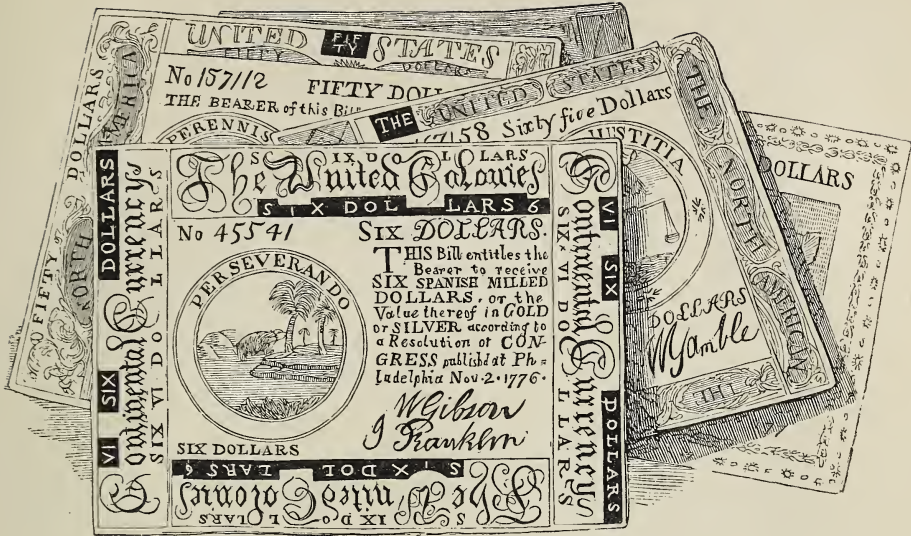 UNITED FIFTY STATES
FIFTY DOLLARS
No 157112 FIFTY DOLL
THE BEARER of this Bil
PERENNIS
FIFTY DOLLARS
NORTH AMERICA
THE UNITED STATES
7158 Sixty five Dollars
JUSTITIA
DOLLARS
W Gamble
THE NORTH AMERICAN
THE
DOLLARS
SIX DOLLARS
The United Colonies
SIX DOLLARS 6
No 45541 SIX DOLLARS.
PERSEVERANDO
THIS Bill entitles the
Bearer to receive
SIX SPANISH MILLED
DOLLARS, or the
Value thereof in GOLD
or SILVER according to
a Resolution of CON=
GRESS published at Ph=
ladelphia Nov. 2. 1776.
W Gibson
J Franklin
SIX DOLLARS
VI SIX DOLLARS
Continental Currency
SIX VI DOLLARS
VI SIX DOLLARS
Continental Currency
SIX VI DOLLARS
SIX DOLLARS 6
The United Colonies
SIX DOLLARS